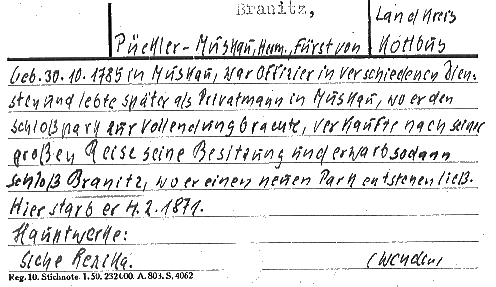 Branitz,
Landkreis
Pückler-Muskau, Herm., Fürst von
Kottbus
Geb. 30.10.1785 in Muskau, war Offizier in verschiedenen Dien-
sten und lebte später als Privatmann in Muskau, wo er den
Schloßpark zur Vollendung brachte, verkaufte nach seiner
großen Reise seine Besitzung und erwarb sodann
Schloß Branitz, wo er einen neuen Park entstehen ließ.
Hier starb er 4.2.1871.
Hauptwerke:
Siehe
(Wenden)
Reg. 10. Stichnote. 1. 50. 232400. A. 803. S. 4062